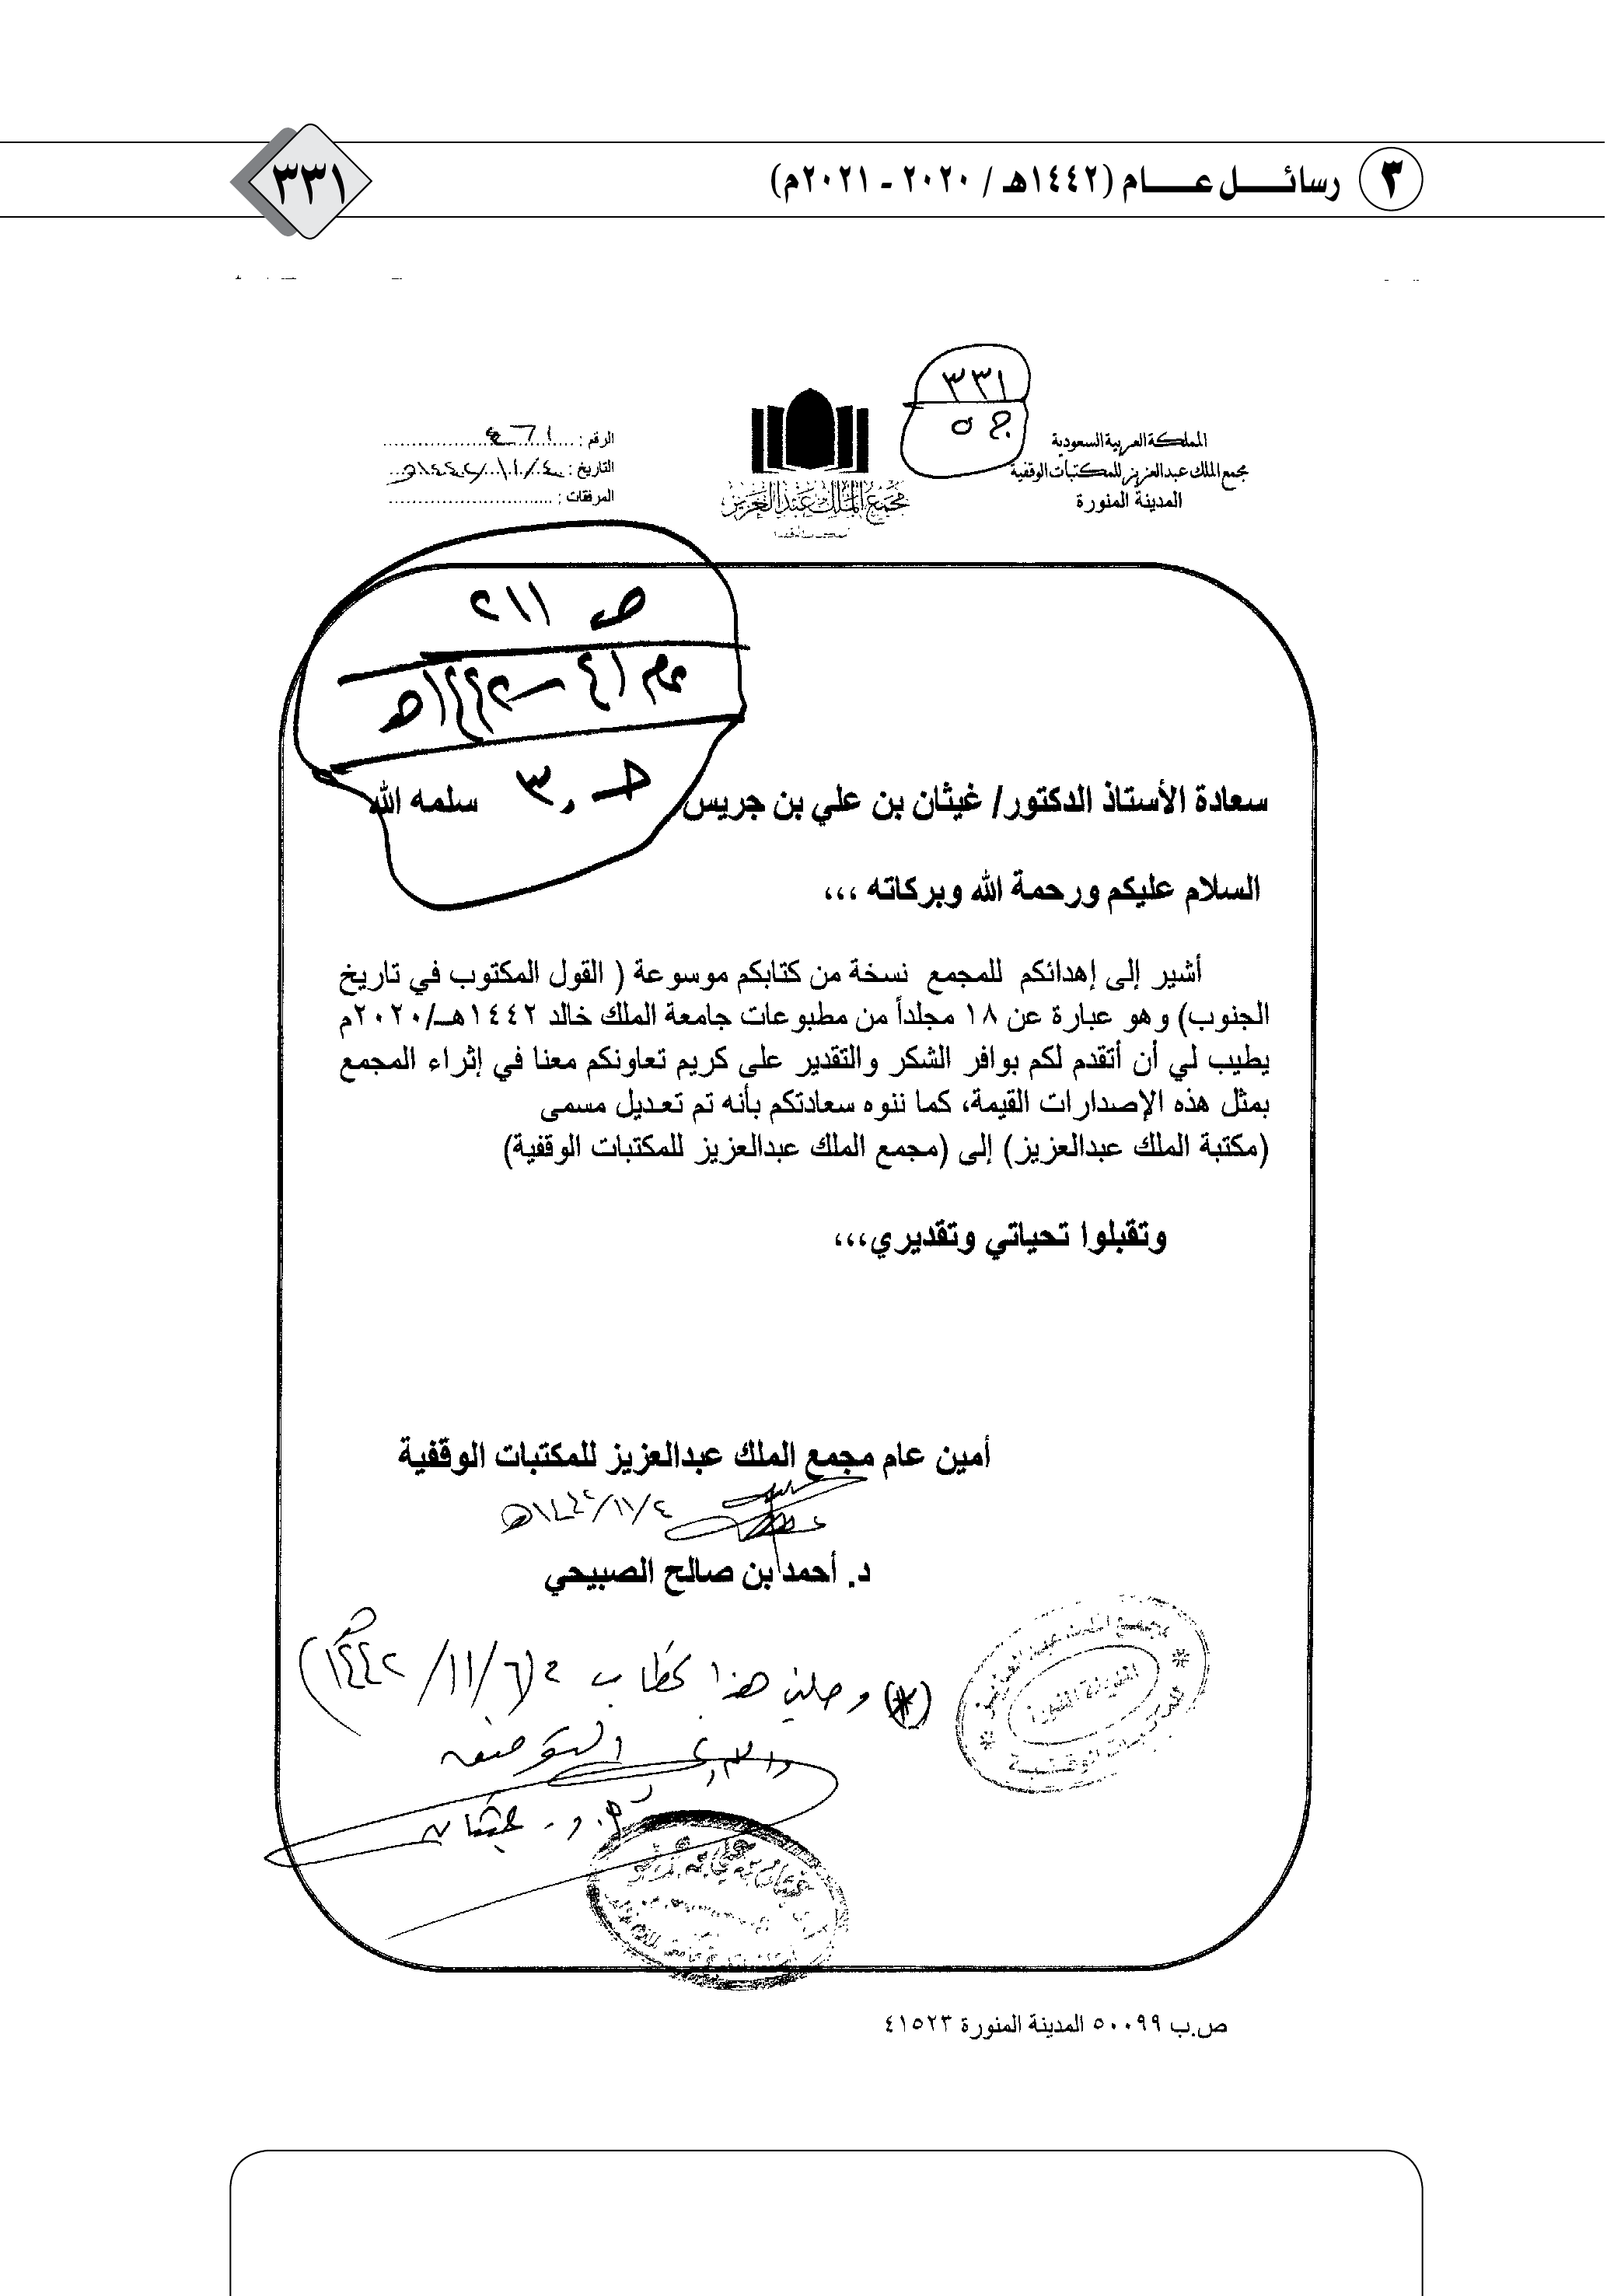 ٣ رسائل عام (١٤٤٢هـ / ٢٠٢٠ - ٢٠٢١م)
٣٣١
٣٣١
ج ٥
المملكة العربية السعودية
مجمع الملك عبدالعزيز للمكتبات الوقفية
المدينة المنورة
مجمع الملك عبد العزيز
الرقم :
التاريخ :
المرفقات :
ص ٢١١
عام ٤١ – ١٤٤٢هـ
سعادة الأستاذ الدكتور/ غيثان بن علي بن جريس سلمه الله
السلام عليكم ورحمة الله وبركاته ،،،
أشير إلى إهدائكم للمجمع نسخة من كتابكم موسوعة ( القول المكتوب في تاريخ
الجنوب) وهو عبارة عن ١٨ مجلداً من مطبوعات جامعة الملك خالد ١٤٤٢هـ/٢٠٢٠م
يطيب لي أن أتقدم لكم بوافر الشكر والتقدير على كريم تعاونكم معنا في إثراء المجمع
بمثل هذه الإصدارات القيمة، كما ننوه سعادتكم بأنه تم تعديل مسمى
(مكتبة الملك عبدالعزيز) إلى (مجمع الملك عبدالعزيز للمكتبات الوقفية)
وتقبلوا تحياتي وتقديري،،،
أمين عام مجمع الملك عبدالعزيز للمكتبات الوقفية
٤/١١/١٤٤٢هـ
د. أحمد بن صالح الصبيحي
(*) وصلني هذا الخطاب في (٦/١١/١٤٤٢هـ)
والله الموفق
أ.د. غيثان
ص.ب ٥٠٠٩٩ المدينة المنورة ٤١٥٢٣